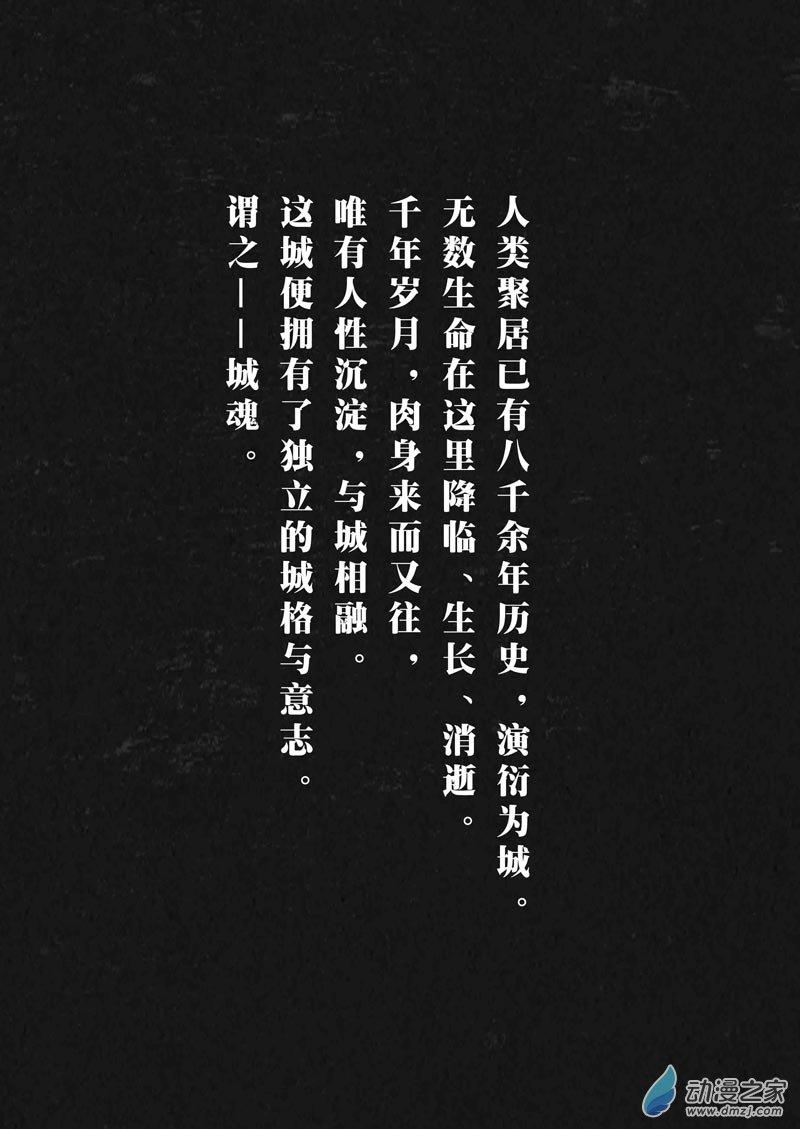 人类聚居已有八千余年历史，演衍为城。
无数生命在这里降临、生长、消逝。
千年岁月，肉身来而又往，
唯有人性沉淀，与城相融。
这城便拥有了独立的城格与意志。
谓之——城魂。
动漫之家
www.dmzj.com